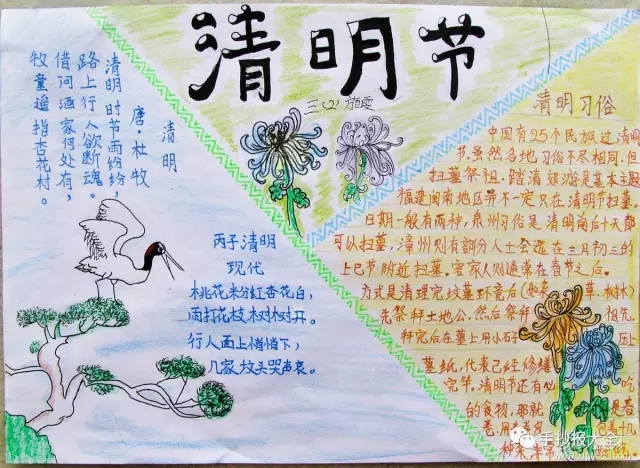 清明节
三(2)
清明
唐·杜牧
清明时节雨纷纷，
路上行人欲断魂。
借问酒家何处有，
牧童遥指杏花村。
丙子清明
现代
桃花粉红杏花白，
雨打花枝树树开。
行人面上悄悄下，
几家坟头哭声哀。
清明习俗
中国有25个民族过清明
节，虽然各地习俗不尽相同，但
扫墓祭祖、踏清郊游是基本主题
福建闽南地区并不一定只在清明节扫墓，
日期一般有两种，泉州习俗是清明前后十天都
可以扫墓，漳州则有部分人士会选在三月初三的
上巳节附近扫墓，客家人则通常在春节之后。
方式是清理完坟墓环境后(如 草、树木)
先祭拜土地公，然后祭拜 祖先
拜完后在墓上用小石 压
墓纸，代表已经修缮
完毕，清明节还有必 吃
的食物，那就 是春
卷，用
种菜
手抄报大全